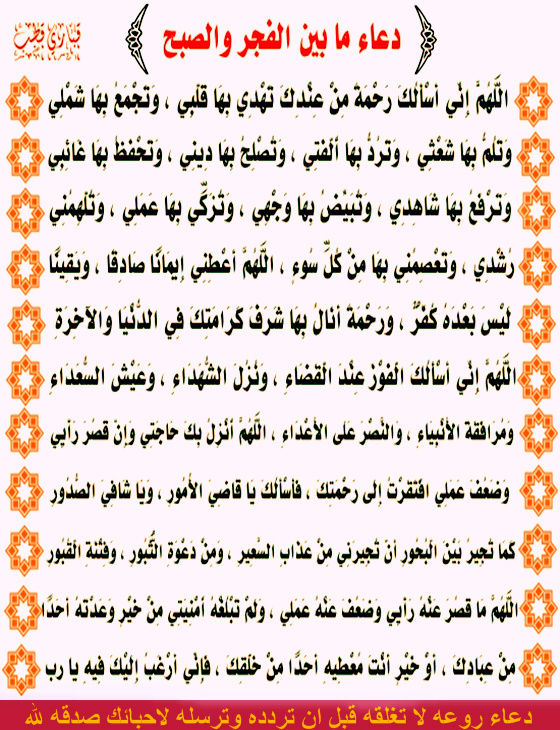 دعاء ما بين الفجر والصبح
قباري قطب
اللَّهُمَّ إِنِّي أسْألُكَ رَحْمَةً مِنْ عِنْدِكَ تَهْدِي بِهَا قَلبِي ، وَتَجْمَعُ بِهَا شَمْلِي
وَتَلُمُّ بِهَا شَعْثِي ، وَتَرُدُّ بِهَا ألْفَتِي ، وَتُصْلِحُ بِهَا دِينِي ، وَتَحْفَظُ بِهَا غَائِبِي
وَتَرْفَعُ بِهَا شَاهِدِي ، وَتُبَيّضُ بِهَا وَجْهِي ، وَتُزَكِّي بِهَا عَمَلِي ، وَتُلهِمُنِي
رُشْدِي ، وَتَعْصِمُنِي بِهَا مِنْ كُلِّ سُوءٍ ، اللَّهُمَّ أعْطِنِي إِيمَانًا صَادِقًا ، وَيَقِينًا
لَيْسَ بَعْدَهُ كُفْرٌ ، وَرَحْمَةً أنَالُ بِهَا شَرَفَ كَرَامَتِكَ فِي الدُّنْيَا وَالآخِرَةِ
اللَّهُمَّ إِنِّي أسْألُكَ الْفَوْزَ عِنْدَ الْقَضَاءِ ، وَنُزُلَ الشُّهَدَاءِ ، وَعَيْشَ السُّعَدَاءِ
وَمُرَافَقَةَ الأنْبِيَاءِ ، وَالنَّصْرَ عَلَى الأعْدَاءِ ، اللَّهُمَّ أنْزِلُ بِكَ حَاجَتِي وَإنْ قَصُرَ رَأيِي
وَضَعُفَ عَمَلِي افْتَقَرْتُ إلى رَحْمَتِكَ ، فَأسْألُكَ يَا قَاضِيَ الأمُورِ ، وَيَا شَافِيَ الصُّدُورِ
كَمَا تُجِيرُ بَيْنَ الْبُحُورِ أنْ تُجِيرَنِي مِنْ عَذَابِ السَّعِيرِ ، وَمِنْ دَعْوَةِ الثُّبُورِ ، وَفِتْنَةِ الْقُبُورِ
اللَّهُمَّ مَا قَصُرَ عَنْهُ رَأيِي وَضَعُفَ عَنْهُ عَمَلِي ، وَلَمْ تَبْلُغْهُ أمْنِيَتِي مِنْ خَيْرٍ وَعَدْتَهُ أحَدًا
مِنْ عِبَادِكَ ، أوْ خَيْرٍ أنْتَ مُعْطِيهِ أحَدًا مِنْ خَلقِكَ ، فَإنِّي أرْغَبُ إلَيْكَ فِيهِ يا رب
دعاء روعه لا تغلقه قبل ان تردده وترسله لاحبائك صدقه لله